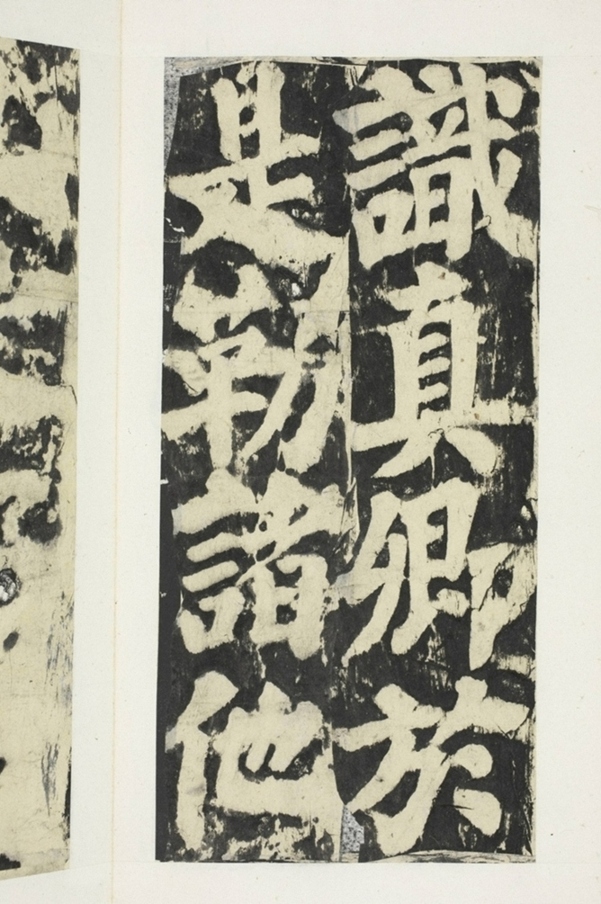 識真卿於
是勒諸他